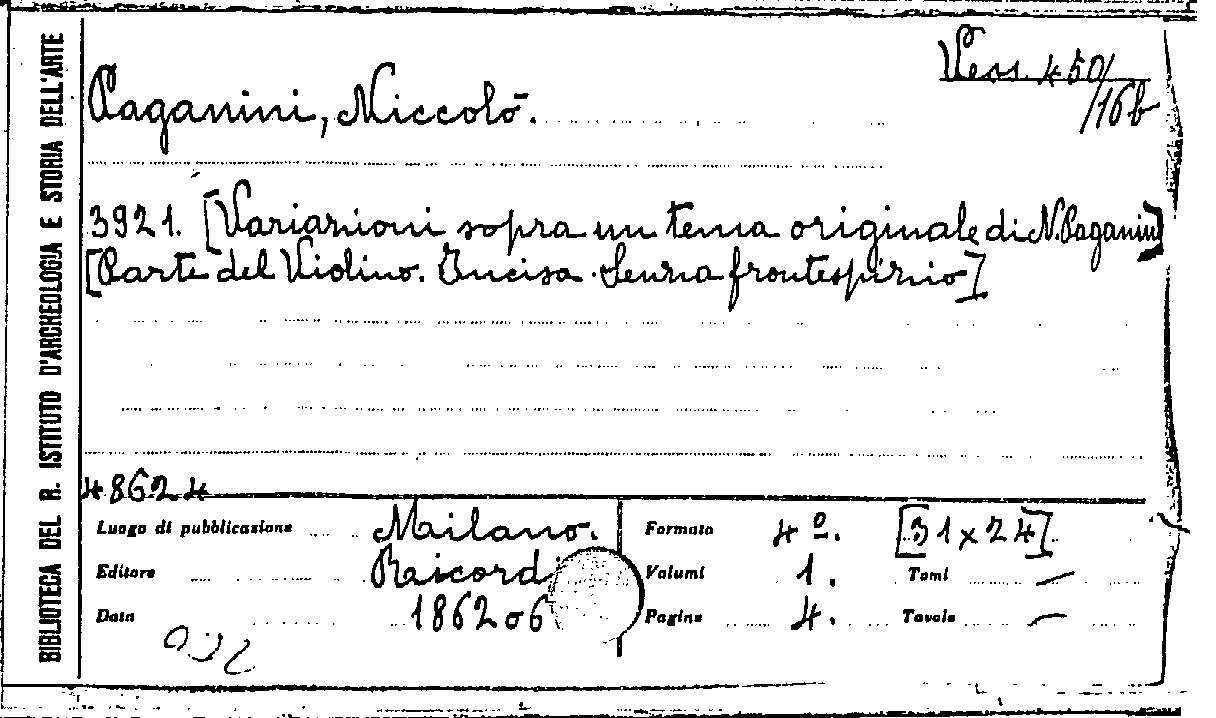 BIBLIOTECA DEL R. ISTITUTO D'ARCHEOLOGIA E STORIA DELL'ARTE
Vess. 450/
/16b
Paganini, Niccolò.
3921. [Variazioni sopra un tema originale di N. Paganini]
[Parte del Violino. Incisa. Senza frontespizio]
48624
Luogo di pubblicazione Milano.
Formato 4º. [31x24]
Editore Ricordi
Volumi 1. Tomi —
Data 1862 o 6
Pagine 4. Tavole —